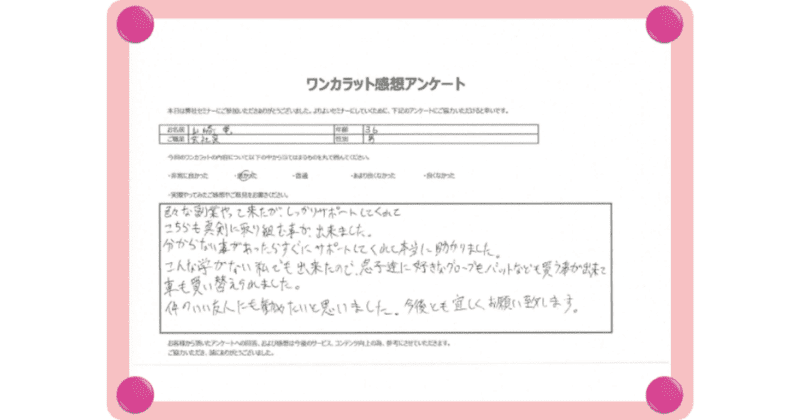 ワンカラット感想アンケート
本日は弊社セミナーにご参加いただきありがとうございました。よりよいセミナーにしていくために、下記のアンケートにご協力いただけると幸いです。
お名前 山崎 年齢 36
ご職業 会社員 性別 男
今回のワンカラットの内容については以下の中から当てはまるものを丸で囲んでください。
・非常に良かった ・良かった ・普通 ・あまり良くなかった ・良くなかった
・実際やってみたご感想やご意見をお書きください。
色々な副業やって来たが、しっかりサポートしてくれて
こちらも真剣に取り組む事が出来ました。
分からない事があったらすぐにサポートしてくれて本当に助かりました。
こんな学がない私でも出来たので、息子達に好きなグローブもバットなども買う事が出来て
車も買い替えられました。
仲のいい友人にも勧めたいと思いました。今後とも宜しくお願い致します。
お客様から頂いたアンケートへの回答、および感想は今後のサービス、コンテンツ向上の為、参考にさせていただきます。
ご協力いただき、誠にありがとうございました。